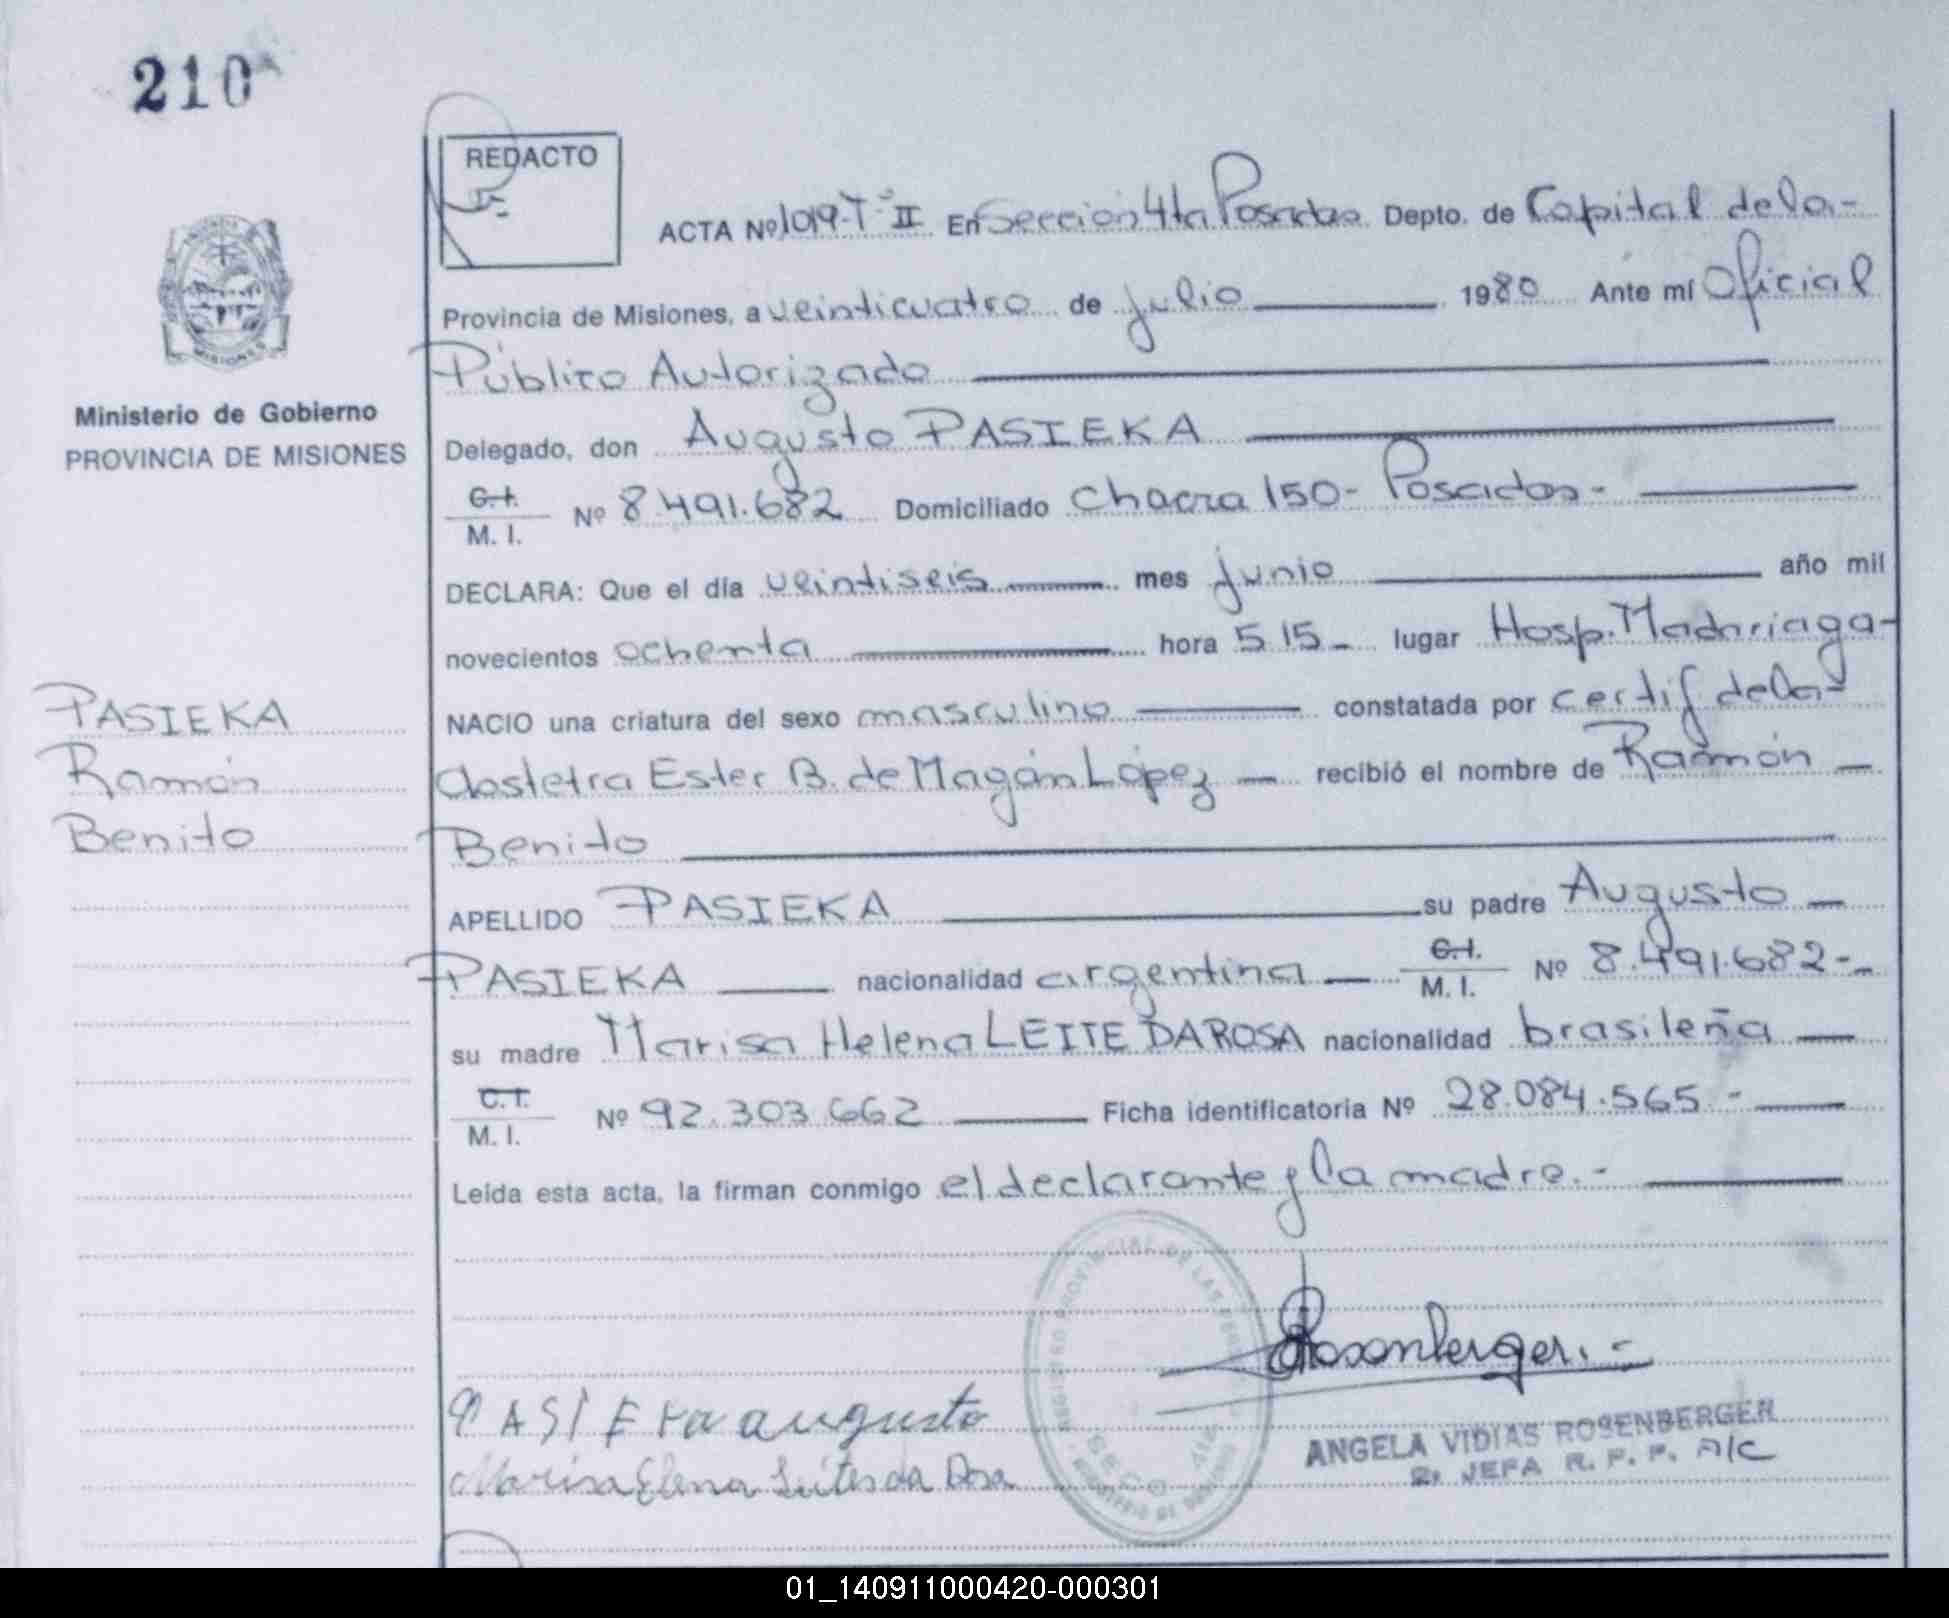 210
REDACTO
ACTA Nº 1019-T-II En Sección 4ta Posadas Depto. de Capital de la-
Provincia de Misiones, a veinticuatro de julio 1980 Ante mí Oficial
Público Autorizado
Ministerio de Gobierno
PROVINCIA DE MISIONES
Delegado, don Augusto PASIEKA
C.I.
M. I. Nº 8.491.682 Domiciliado Chacra 150- Posadas-
DECLARA: Que el día veintiseis mes junio año mil
novecientos ochenta hora 5.15- lugar Hosp. Madariaga-
PASIEKA
Ramón
Benito
NACIO una criatura del sexo masculino constatada por certif de la-
Obstetra Ester B. de Magán López - recibió el nombre de Ramón -
Benito
APELLIDO PASIEKA su padre Augusto -
PASIEKA nacionalidad argentina - C.I.
M. I. Nº 8.491.682--
su madre Marisa Helena LEITE DA ROSA nacionalidad brasileña -
C.I.
M. I. Nº 92.303.662 Ficha identificatoria Nº 28.084.565.-
Leída esta acta, la firman conmigo el declarante y la madre.-
REGISTRO PROVINCIAL DE LAS
Rosenberger.-
PASIEKA augusto
ANGELA VIDIAS ROSENBERGER
2. JEFA R. P. P. A/C
Marisa Elena Leites da Rosa
01_140911000420-000301